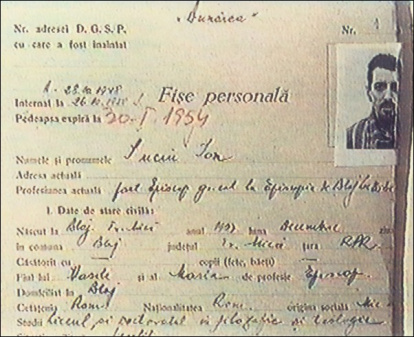 "Dunărea"
Nr. adresei D. G. S. P.
cu care a fost înaintat
Nr. 1
A - 28.XI.1948
Internat la 26.10.1948
Fișe personală
Pedeapsa expiră la 30-I-1954
Numele și pronumele Suciu Ion
Adresa actuală
Profesiunea actuală fost Episcop gr. cat la Episcopia de Blaj
I. Date de stare civilă:
Născut la Blaj Tr. Mică anul 1907 luna Decembrie ziua
în comuna Blaj județul Tr. Mică țara RPR.
Căsătorit cu — copii (fete, băieți) —
Fiul lui Vasile și al Maria de profesie Episcop
Domiciliat în Blaj
Cetățenia Rom. Naționalitatea Rom. origina socială Mic
Studii liceul și doctoratul în filozofie și teologie